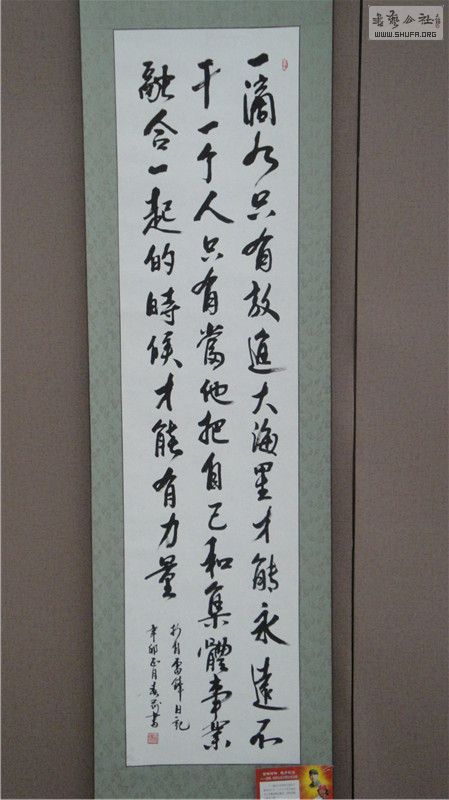 一滴水只有放進大海里才能永遠不
干一个人只有當他把自己和集體事業
融合一起的時候才能有力量
抄自雷鋒日記
辛卯正月
書法公社
WWW.SHUFA.ORG